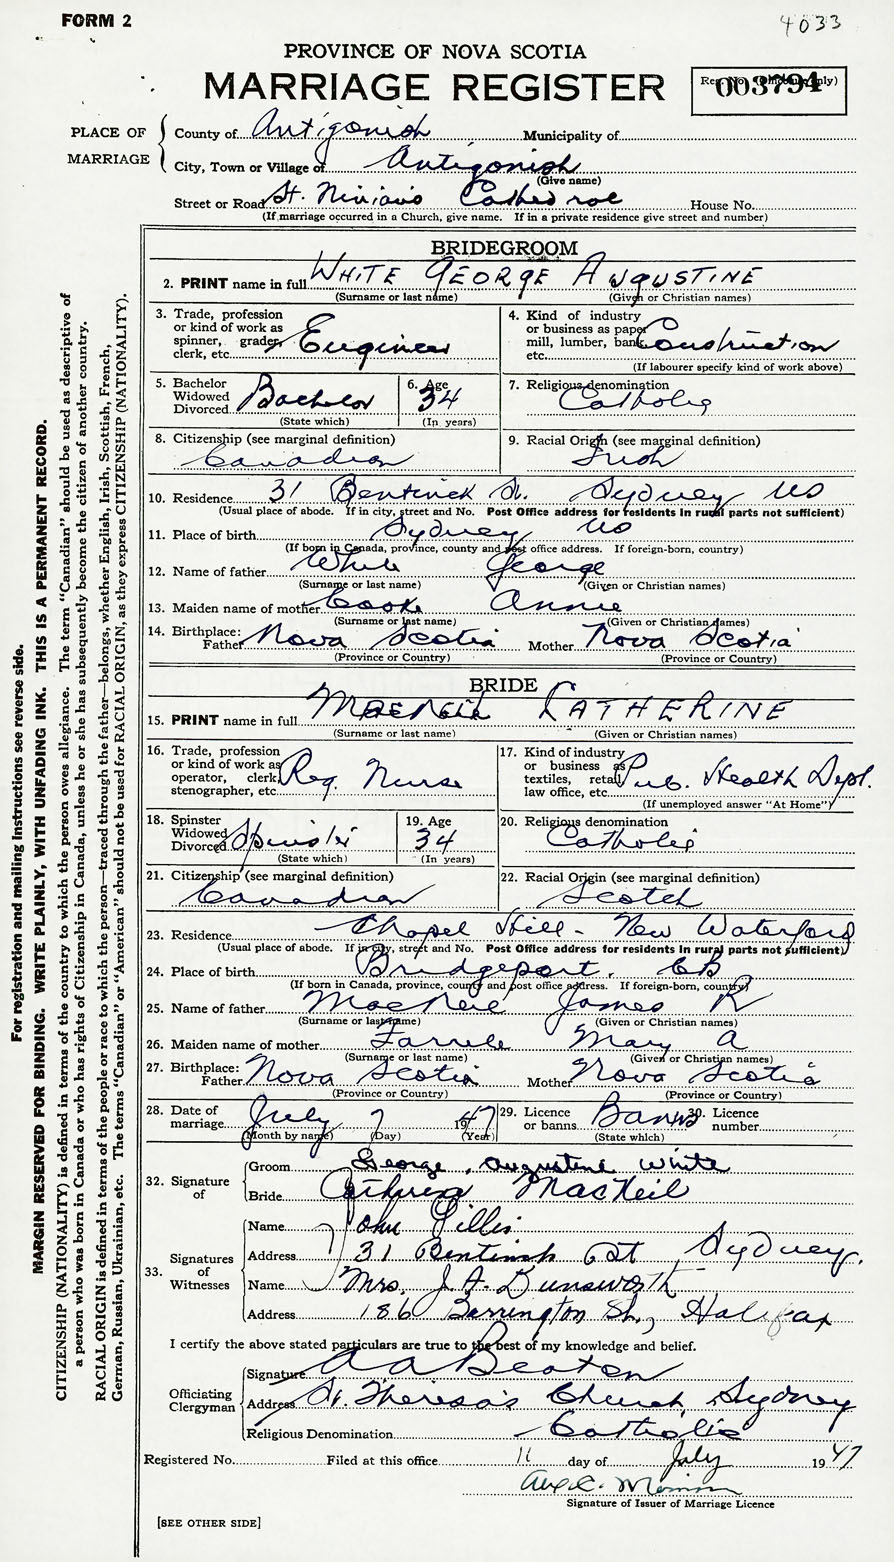 FORM 2
4033
PROVINCE OF NOVA SCOTIA
MARRIAGE REGISTER
Reg. No. only)
003794
PLACE OF MARRIAGE
County of Antigonish Municipality of
City, Town or Village of Antigonish
(Give name)
Street or Road St. Ninian's Cathedral House No.
(If marriage occurred in a Church, give name. If in a private residence give street and number)
BRIDEGROOM
2. PRINT name in full WHITE GEORGE AUGUSTINE
(Surname or last name) (Given or Christian names)
3. Trade, profession or kind of work as spinner, grader, clerk, etc. Engineer
4. Kind of industry or business as paper mill, lumber, bank etc. Construction
(If labourer specify kind of work above)
5. Bachelor Widowed Divorced Bachelor
(State which)
6. Age 34
(In years)
7. Religious denomination
Catholic
8. Citizenship (see marginal definition)
Canadian
9. Racial Origin (see marginal definition)
Irish
10. Residence 31 Bentinck St. Sydney NS
(Usual place of abode. If in city, street and No. Post Office address for residents in rural parts not sufficient)
11. Place of birth Sydney NS
(If born in Canada, province, county and post office address. If foreign-born, country)
12. Name of father White George
(Surname or last name) (Given or Christian names)
13. Maiden name of mother Cooke Annie
(Surname or last name) (Given or Christian names)
14. Birthplace: Father Nova Scotia Mother Nova Scotia
(Province or Country) (Province or Country)
BRIDE
15. PRINT name in full MacNeil CATHERINE
(Surname or last name) (Given or Christian names)
16. Trade, profession or kind of work as operator, clerk, stenographer, etc. Reg. Nurse
17. Kind of industry or business as textiles, retail, law office, etc. Pub. Health Dept.
(If unemployed answer "At Home")
18. Spinster Widowed Divorced Spinster
(State which)
19. Age 34
(In years)
20. Religious denomination
Catholic
21. Citizenship (see marginal definition)
Canadian
22. Racial Origin (see marginal definition)
Scotch
23. Residence Chapel Hill - New Waterford
(Usual place of abode. If in city, street and No. Post Office address for residents in rural parts not sufficient)
24. Place of birth Bridgeport. CB
(If born in Canada, province, county and post office address. If foreign-born, country)
25. Name of father MacNeil James R
(Surname or last name) (Given or Christian names)
26. Maiden name of mother Farrell Mary A
(Surname or last name) (Given or Christian names)
27. Birthplace: Father Nova Scotia Mother Nova Scotia
(Province or Country) (Province or Country)
28. Date of marriage July 7 1947
(Month by name) (Day) (Year)
29. Licence or banns Banns
(State which)
30. Licence number
32. Signature of
Groom George Augustine White
Bride Catherine MacNeil
33. Signatures of Witnesses
Name John Gillis
Address 31 Bentinck St Sydney.
Name Mrs. J. A. Dunsworth
Address 186 Barrington St., Halifax
I certify the above stated particulars are true to the best of my knowledge and belief.
Officiating Clergyman
Signature A A Beaton
Address St. Theresa's Church, Sydney
Religious Denomination Catholic
Registered No. Filed at this office 11 day of July 1947
Signature of Issuer of Marriage Licence
[SEE OTHER SIDE]
For registration and mailing instructions see reverse side.
MARGIN RESERVED FOR BINDING. WRITE PLAINLY, WITH UNFADING INK. THIS IS A PERMANENT RECORD.
CITIZENSHIP (NATIONALITY) is defined in terms of the country to which the person owes allegiance. The term "Canadian" should be used as descriptive of
a person who was born in Canada or who has rights of Citizenship in Canada, unless he or she has subsequently become the citizen of another country.
RACIAL ORIGIN is defined in terms of the people or race to which the person—traced through the father—belongs, whether English, Irish, Scottish, French,
German, Russian, Ukrainian, etc. The terms "Canadian" or "American" should not be used for RACIAL ORIGIN, as they express CITIZENSHIP (NATIONALITY).